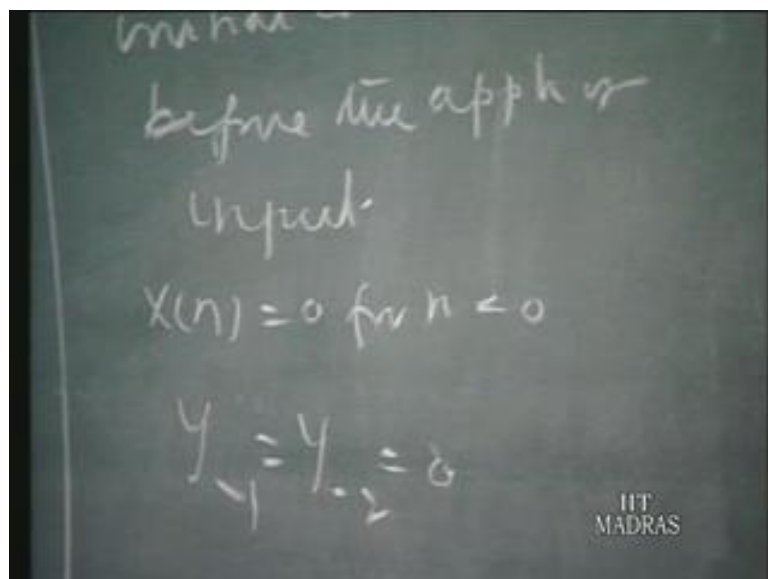 initial
before the appln of
input.
x(n) = 0 for n < 0
y₋₁ = y₋₂ = 0
IIT
MADRAS